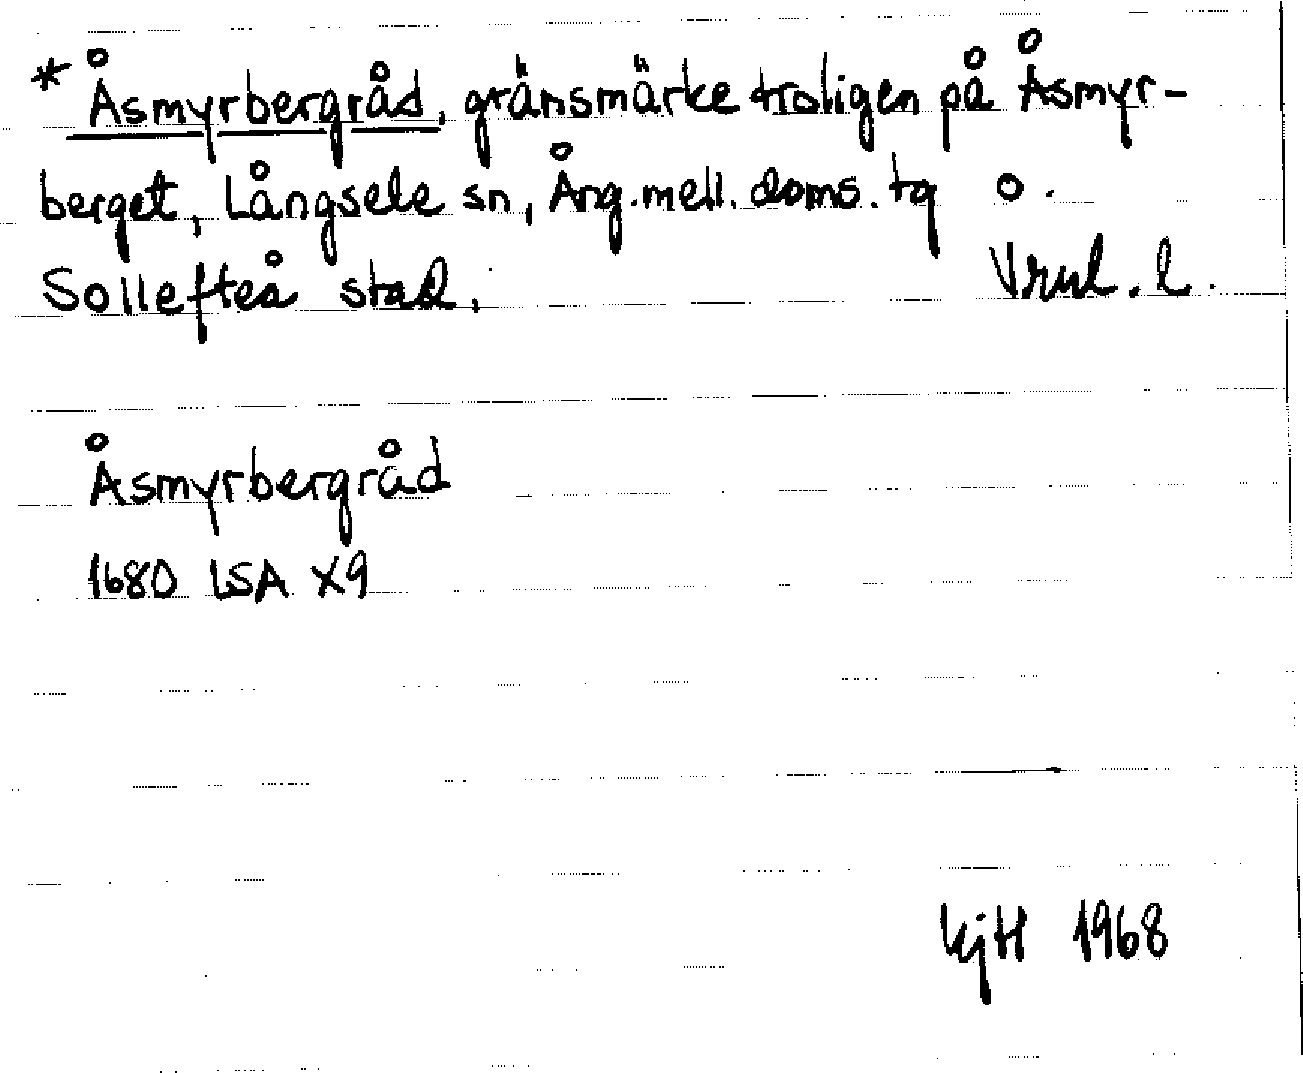 * Åsmyrbergråd, gränsmärke troligen på Åsmyr-
berget, Långsele sn, Ång.mell.doms.tg o.
Sollefteå stad. Vrnl.l.
Åsmyrbergråd
1680 LSA X9
KjH 1968